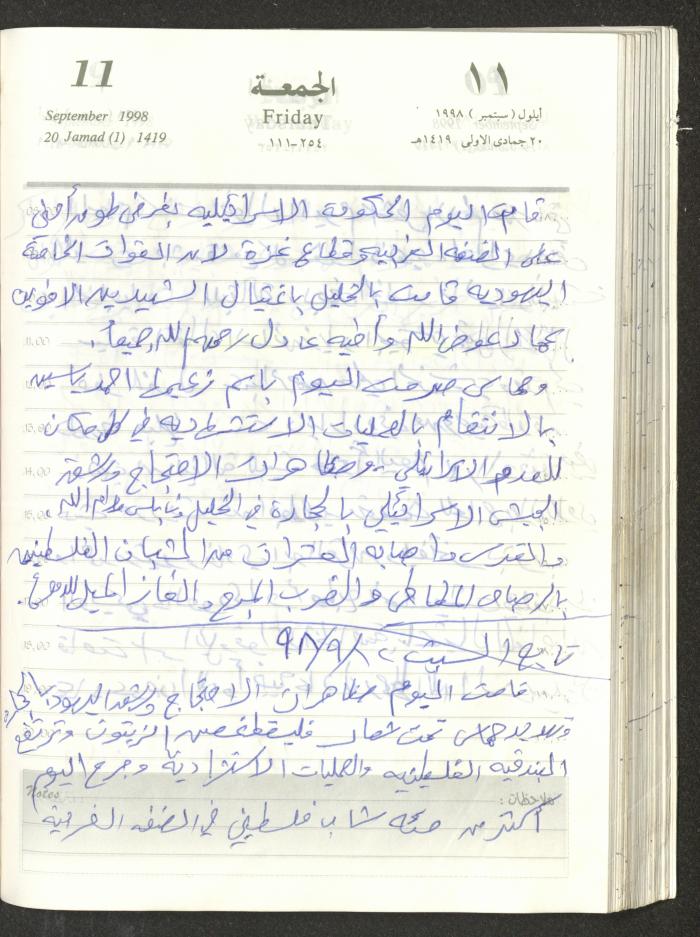 11
September 1998
20 Jamad (1) 1419
الجمعة
Friday
٢٥٤-١١١
١١
أيلول (سبتمبر) ١٩٩٨
٢٠ جمادى الاولى ١٤١٩هـ
قامت اليوم الحكومة الاسرائيليه بفرض طوق أمني
على الضفه الغربيه وقطاع غزة لان القوات الخاصة
اليهوديه قامت بالخليل باغتيال الشهيدين الاخوين
عماد عوض الله وأخيه عادل رحمهم الله جميعاً.
وحماس صرحت اليوم باسم زعيمها احمد ياسين
بالانتقام بالعمليات الاستشهاديه في كل مكان
للعدو الاسرائيلي ومظاهرات الاحتجاج ورشق
الجيش الاسرائيلي بالحجارة في الخليل ونابلس ورام الله
والقدس واصابه العشرات من الشبان الفلسطينين
بالرصاص المطاطي والضرب المبرح والغاز المسيل للدموع.
تابع السبت ٩٨/٩/
قامت اليوم مظاهرات الاحتجاج ورشق اليهود بالحجارة
وتهديد حماس تحت شعار فليسقط غصن الزيتون وترتفع
البندقيه الفلسطينيه والعمليات الاستشهادية وجرح اليوم
Notes
ملاحظات :
أكثر من مئه شاب فلسطيني في الضفه الغربية